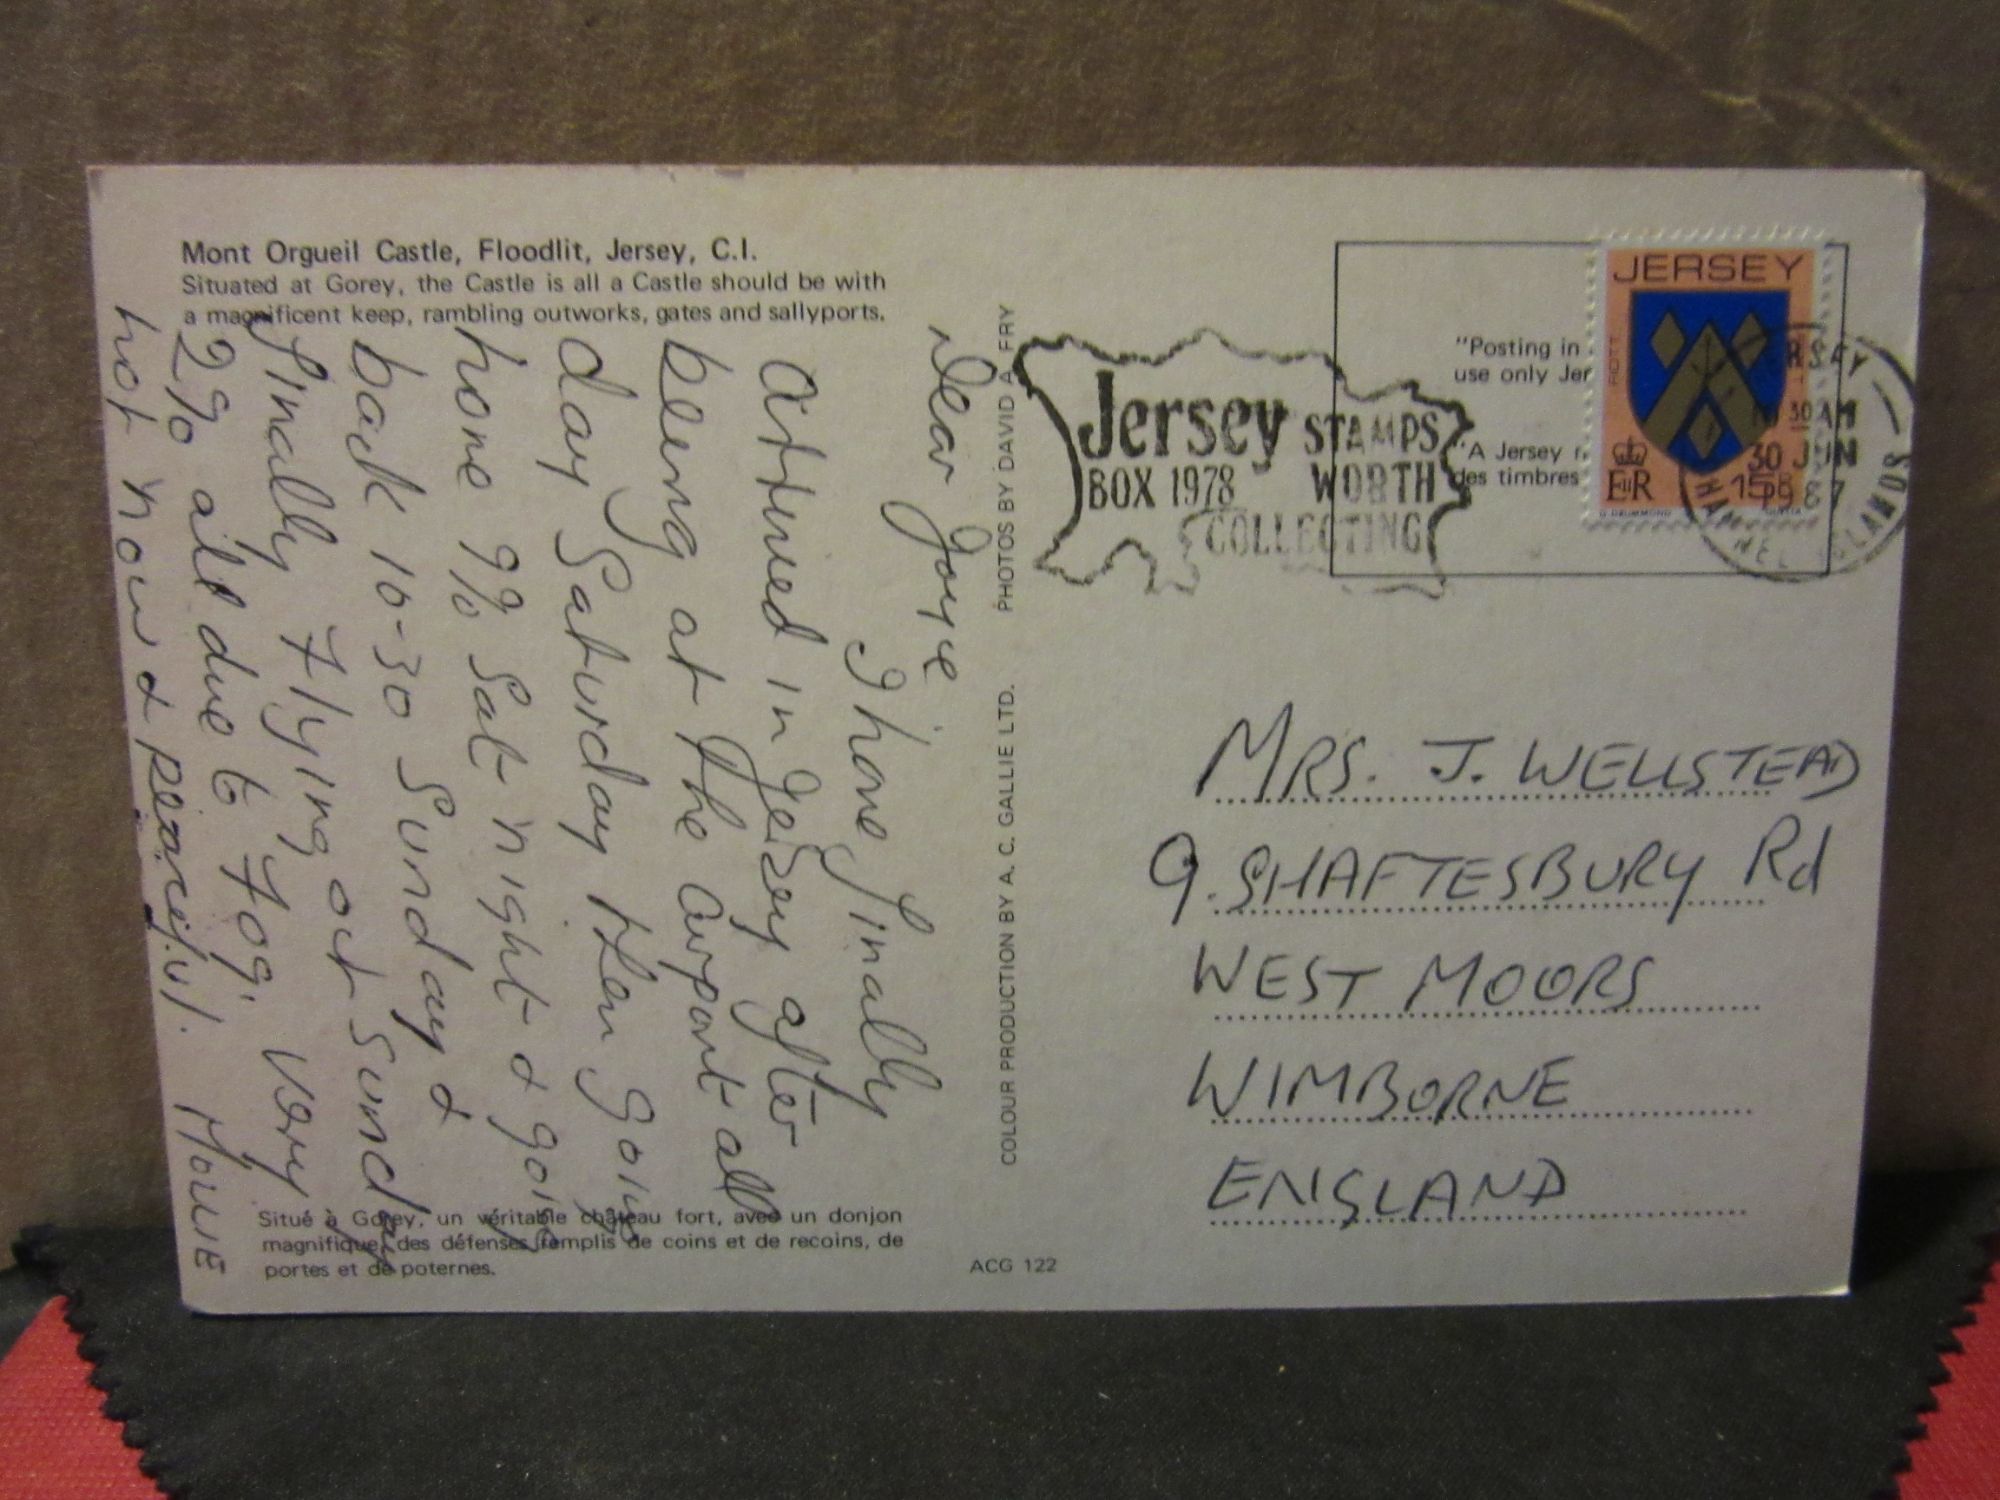 Mont Orgueil Castle, Floodlit, Jersey, C.I.
Situated at Gorey, the Castle is all a Castle should be with
a magnificent keep, rambling outworks, gates and sallyports.
Dear Joyce
I have finally
arrived in Jersey after
being at the airport all
day Saturday then going
home 9% Sat night & going
back 10-30 Sunday &
finally flying out Sunday
2% all due to fog. Very
hot now & peaceful. Mollie
Situé à Gorey, un véritable château fort, avec un donjon
magnifique, des défenses remplis de coins et de recoins, de
portes et de poternes.
PHOTOS BY DAVID A FRY
COLOUR PRODUCTION BY A. C. GALLIE LTD.
ACG 122
Jersey STAMPS
BOX 1978 WORTH
COLLECTING
"Posting in
use only Jer
"A Jersey
des timbres
JERSEY
PIOTT
EIIR
15p
G. DRUMMOND
JERSEY
10 30 AM
30 JUN
1987
CHANNEL ISLANDS
MRS. J. WELLSTEAD
9. SHAFTESBURY Rd
WEST MOORS
WIMBORNE
ENGLAND